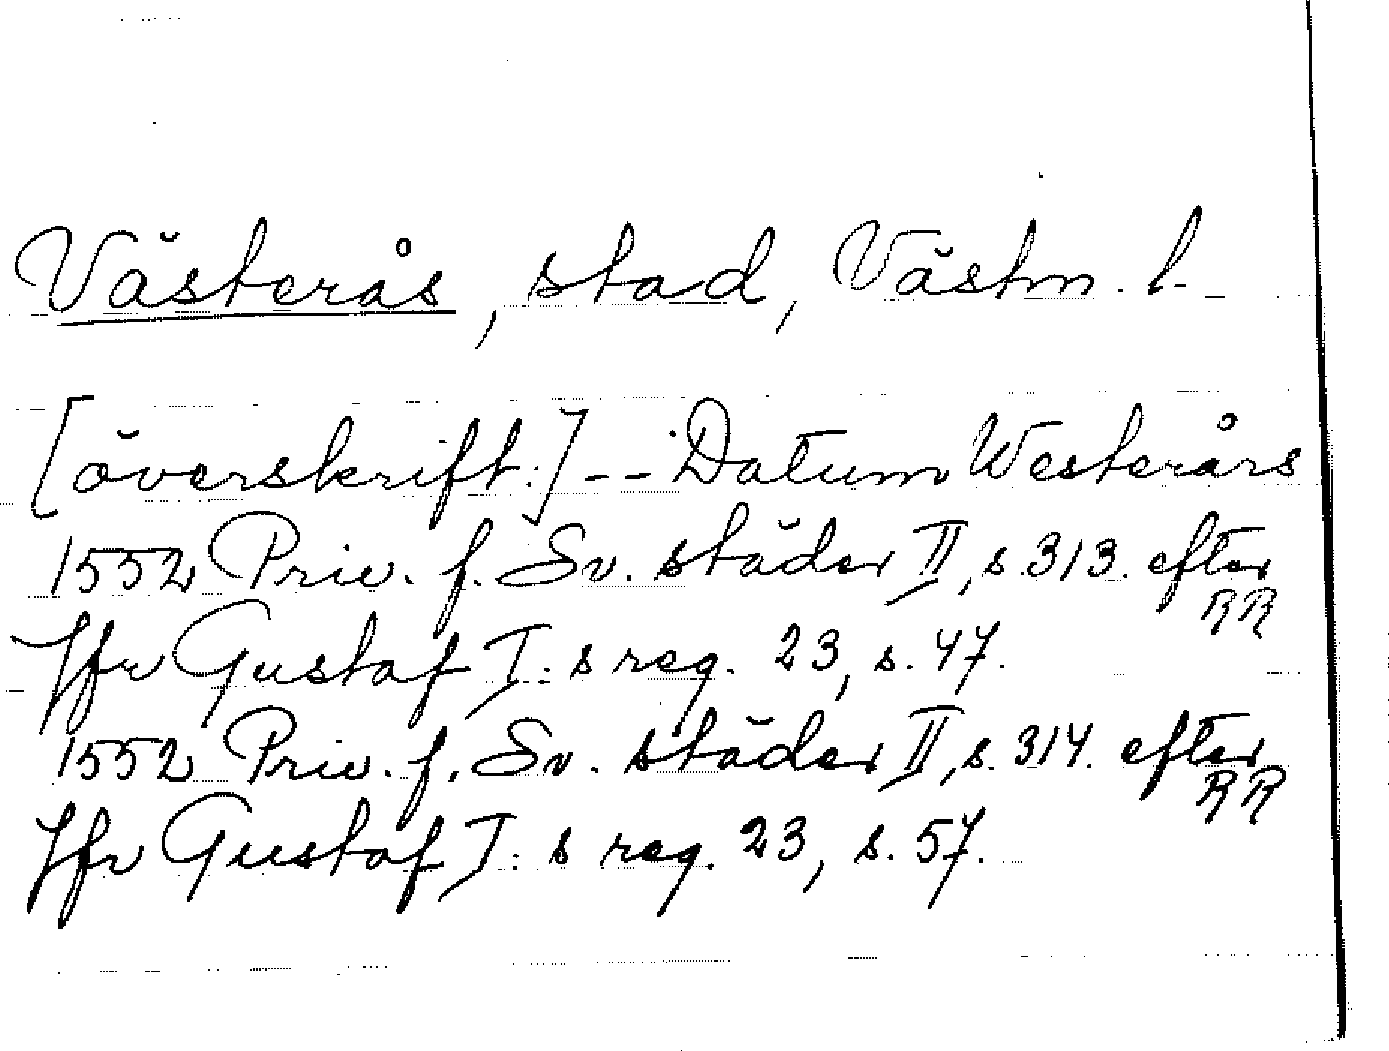 Västerås, stad, Västm. l.
[överskrift:] -- Datum Westerårs
1552 Priv. f. Sv. städer II, s. 313. efter RR
Jfr Gustaf I:s reg. 23, s. 47.
1552 Priv. f. Sv. städer II, s. 314. efter RR
Jfr Gustaf I:s reg. 23, s. 57.